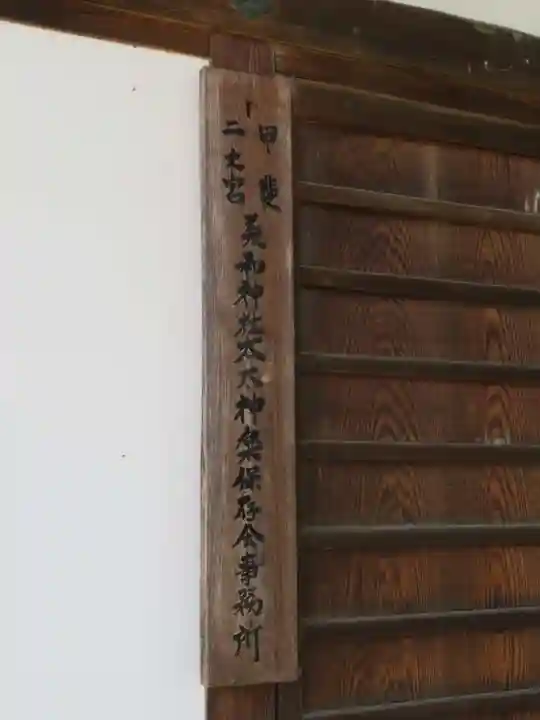 甲斐
二之宮
美和神社太太神楽保存会事務所